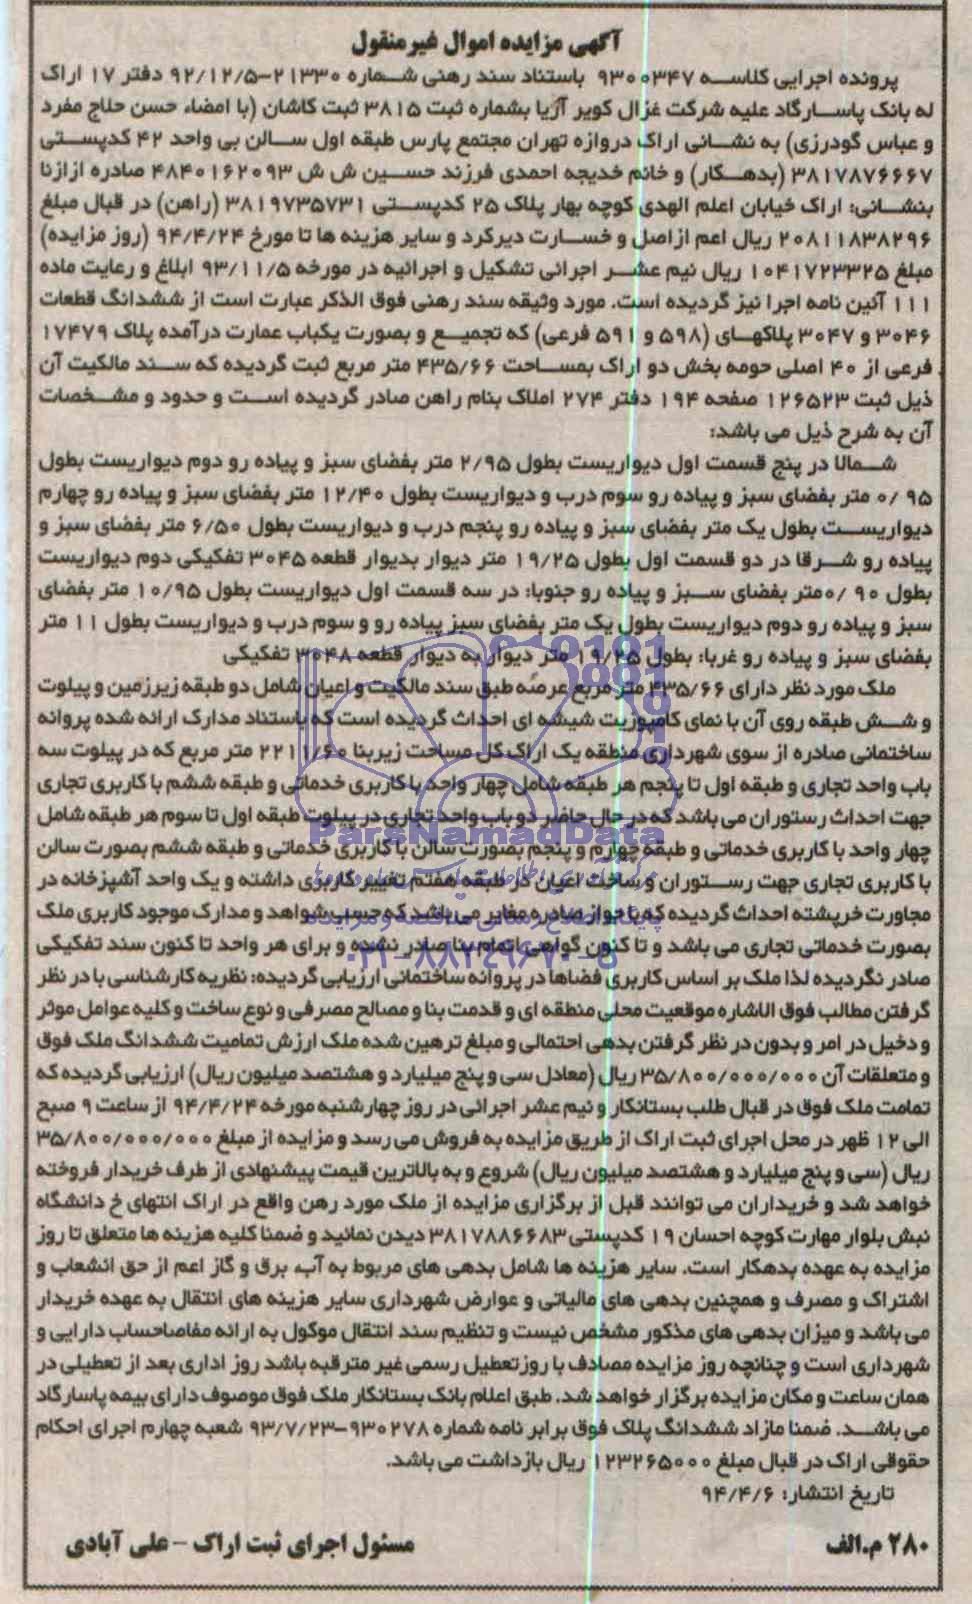 آگهی مزایده اموال غیرمنقول
پرونده اجرایی کلاسه ۹۳۰۰۳۴۷ باستناد سند رهنی شماره ۲۱۳۳۰-۹۲/۱۲/۵ دفتر ۱۷ اراک
له بانک پاسارگاد علیه شرکت غزال کویر آریا بشماره ثبت ۳۸۱۵ ثبت کاشان (با امضاء حسن حلاج مفرد
و عباس گودرزی) به نشانی اراک دروازه تهران مجتمع پارس طبقه اول سالن بی واحد ۴۲ کدپستی
۳۸۱۷۸۷۶۶۶۷ (بدهکار) و خانم خدیجه احمدی فرزند حسین ش ش ۴۸۴۰۱۶۲۰۹۳ صادره ازازنا
بنشانی: اراک خیابان اعلم الهدی کوچه بهار پلاک ۲۵ کدپستی ۳۸۱۹۷۳۵۷۳۱ (راهن) در قبال مبلغ
۲۰۸۱۱۸۳۸۲۹۶ ریال اعم ازاصل و خسارت دیرکرد و سایر هزینه ها تا مورخ ۹۴/۴/۲۴ (روز مزایده)
مبلغ ۱۰۴۱۷۲۳۳۲۵ ریال نیم عشر اجرائی تشکیل و اجرائیه در مورخه ۹۳/۱۱/۵ ابلاغ و رعایت ماده
۱۱۱ آئین نامه اجرا نیز گردیده است. مورد وثیقه سند رهنی فوق الذکر عبارت است از ششدانگ قطعات
۳۰۴۶ و ۳۰۴۷ پلاکهای (۵۹۸ و ۵۹۱ فرعی) که تجمیع و بصورت یکباب عمارت درآمده پلاک ۱۷۴۷۹
فرعی از ۴۰ اصلی حومه بخش دو اراک بمساحت ۴۳۵/۶۶ متر مربع ثبت گردیده که سند مالکیت آن
ذیل ثبت ۱۲۶۵۲۳ صفحه ۱۹۴ دفتر ۲۷۴ املاک بنام راهن صادر گردیده است و حدود و مشخصات
آن به شرح ذیل می باشد:
شمالا در پنج قسمت اول دیواریست بطول ۲/۹۵ متر بفضای سبز و پیاده رو دوم دیواریست بطول
۰/۹۵ متر بفضای سبز و پیاده رو سوم درب و دیواریست بطول ۱۲/۴۰ متر بفضای سبز و پیاده رو چهارم
دیواریست بطول یک متر بفضای سبز و پیاده رو پنجم درب و دیواریست بطول ۶/۵۰ متر بفضای سبز و
پیاده رو شرقا در دو قسمت اول بطول ۱۹/۲۵ متر دیوار بدیوار قطعه ۳۰۴۵ تفکیکی دوم دیواریست
بطول ۰/۹۰متر بفضای سبز و پیاده رو جنوبا: در سه قسمت اول دیواریست بطول ۱۰/۹۵ متر بفضای
سبز و پیاده رو دوم دیواریست بطول یک متر بفضای سبز پیاده رو و سوم درب و دیواریست بطول ۱۱ متر
بفضای سبز و پیاده رو غربا: بطول ۱۹/۲۵ متر دیوار به دیوار قطعه ۳۰۴۸ تفکیکی
ملک مورد نظر دارای ۴۳۵/۶۶ متر مربع عرصه طبق سند مالکیت و اعیان شامل دو طبقه زیرزمین و پیلوت
و شش طبقه روی آن با نمای کامپوزیت شیشه ای احداث گردیده است که باستناد مدارک ارائه شده پروانه
ساختمانی صادره از سوی شهرداری منطقه یک اراک کل مساحت زیربنا ۲۲۱۱/۶۰ متر مربع که در پیلوت سه
باب واحد تجاری و طبقه اول تا پنجم هر طبقه شامل چهار واحد با کاربری خدماتی و طبقه ششم با کاربری تجاری
جهت احداث رستوران می باشد که در حال حاضر دو باب واحد تجاری در پیلوت طبقه اول تا سوم هر طبقه شامل
چهار واحد با کاربری خدماتی و طبقه چهارم و پنجم بصورت سالن با کاربری خدماتی و طبقه ششم بصورت سالن
با کاربری تجاری جهت رستوران و ساخت اعیان در طبقه هفتم تغییر کاربری داشته و یک واحد آشپزخانه در
مجاورت خرپشته احداث گردیده که با جواز صادره مغایر می باشد که حسب شواهد و مدارک موجود کاربری ملک
بصورت خدماتی تجاری می باشد و تا کنون گواهی اتمام بنا صادر نشده و برای هر واحد تا کنون سند تفکیکی
صادر نگردیده لذا ملک بر اساس کاربری فضاها در پروانه ساختمانی ارزیابی گردیده: نظریه کارشناسی با در نظر
گرفتن مطالب فوق الاشاره موقعیت محلی منطقه ای و قدمت بنا و مصالح مصرفی و نوع ساخت و کلیه عوامل موثر
و دخیل در امر و بدون در نظر گرفتن بدهی احتمالی و مبلغ ترهین شده ملک ارزش تمامیت ششدانگ ملک فوق
و متعلقات آن ۳۵/۸۰۰/۰۰۰/۰۰۰ ریال (معادل سی و پنج میلیارد و هشتصد میلیون ریال) ارزیابی گردیده که
تمامت ملک فوق در قبال طلب بستانکار و نیم عشر اجرائی در روز چهارشنبه مورخه ۹۴/۴/۲۴ از ساعت ۹ صبح
الی ۱۲ ظهر در محل اجرای ثبت اراک از طریق مزایده به فروش می رسد و مزایده از مبلغ ۳۵/۸۰۰/۰۰۰/۰۰۰
ریال (سی و پنج میلیارد و هشتصد میلیون ریال) شروع و به بالاترین قیمت پیشنهادی از طرف خریدار فروخته
خواهد شد و خریداران می توانند قبل از برگزاری مزایده از ملک مورد رهن واقع در اراک انتهای خ دانشگاه
نبش بلوار مهارت کوچه احسان ۱۹ کدپستی ۳۸۱۷۸۸۶۶۸۳ دیدن نمائید و ضمنا کلیه هزینه ها متعلق تا روز
مزایده به عهده بدهکار است. سایر هزینه ها شامل بدهی های مربوط به آب، برق و گاز اعم از حق انشعاب و
اشتراک و مصرف و همچنین بدهی های مالیاتی و عوارض شهرداری سایر هزینه های انتقال به عهده خریدار
می باشد و میزان بدهی های مذکور مشخص نیست و تنظیم سند انتقال موکول به ارائه مفاصاحساب دارایی و
شهرداری است و چنانچه روز مزایده مصادف با روزتعطیل رسمی غیر مترقبه باشد روز اداری بعد از تعطیلی در
همان ساعت و مکان مزایده برگزار خواهد شد. طبق اعلام بانک بستانکار ملک فوق موصوف دارای بیمه پاسارگاد
می باشد. ضمنا مازاد ششدانگ پلاک فوق برابر نامه شماره ۹۳۰۲۷۸-۹۳/۷/۲۳ شعبه چهارم اجرای احکام
حقوقی اراک در قبال مبلغ ۱۲۳۲۶۵۰۰۰ ریال بازداشت می باشد.
تاریخ انتشار: ۹۴/۴/۶
۲۸۰ م.الف
مسئول اجرای ثبت اراک - علی آبادی
ParsNamadData
پایگاه اطلاع رسانی مناقصه و مزایده
۰۲۱-۸۸۳۴۹۶۷۰-۵